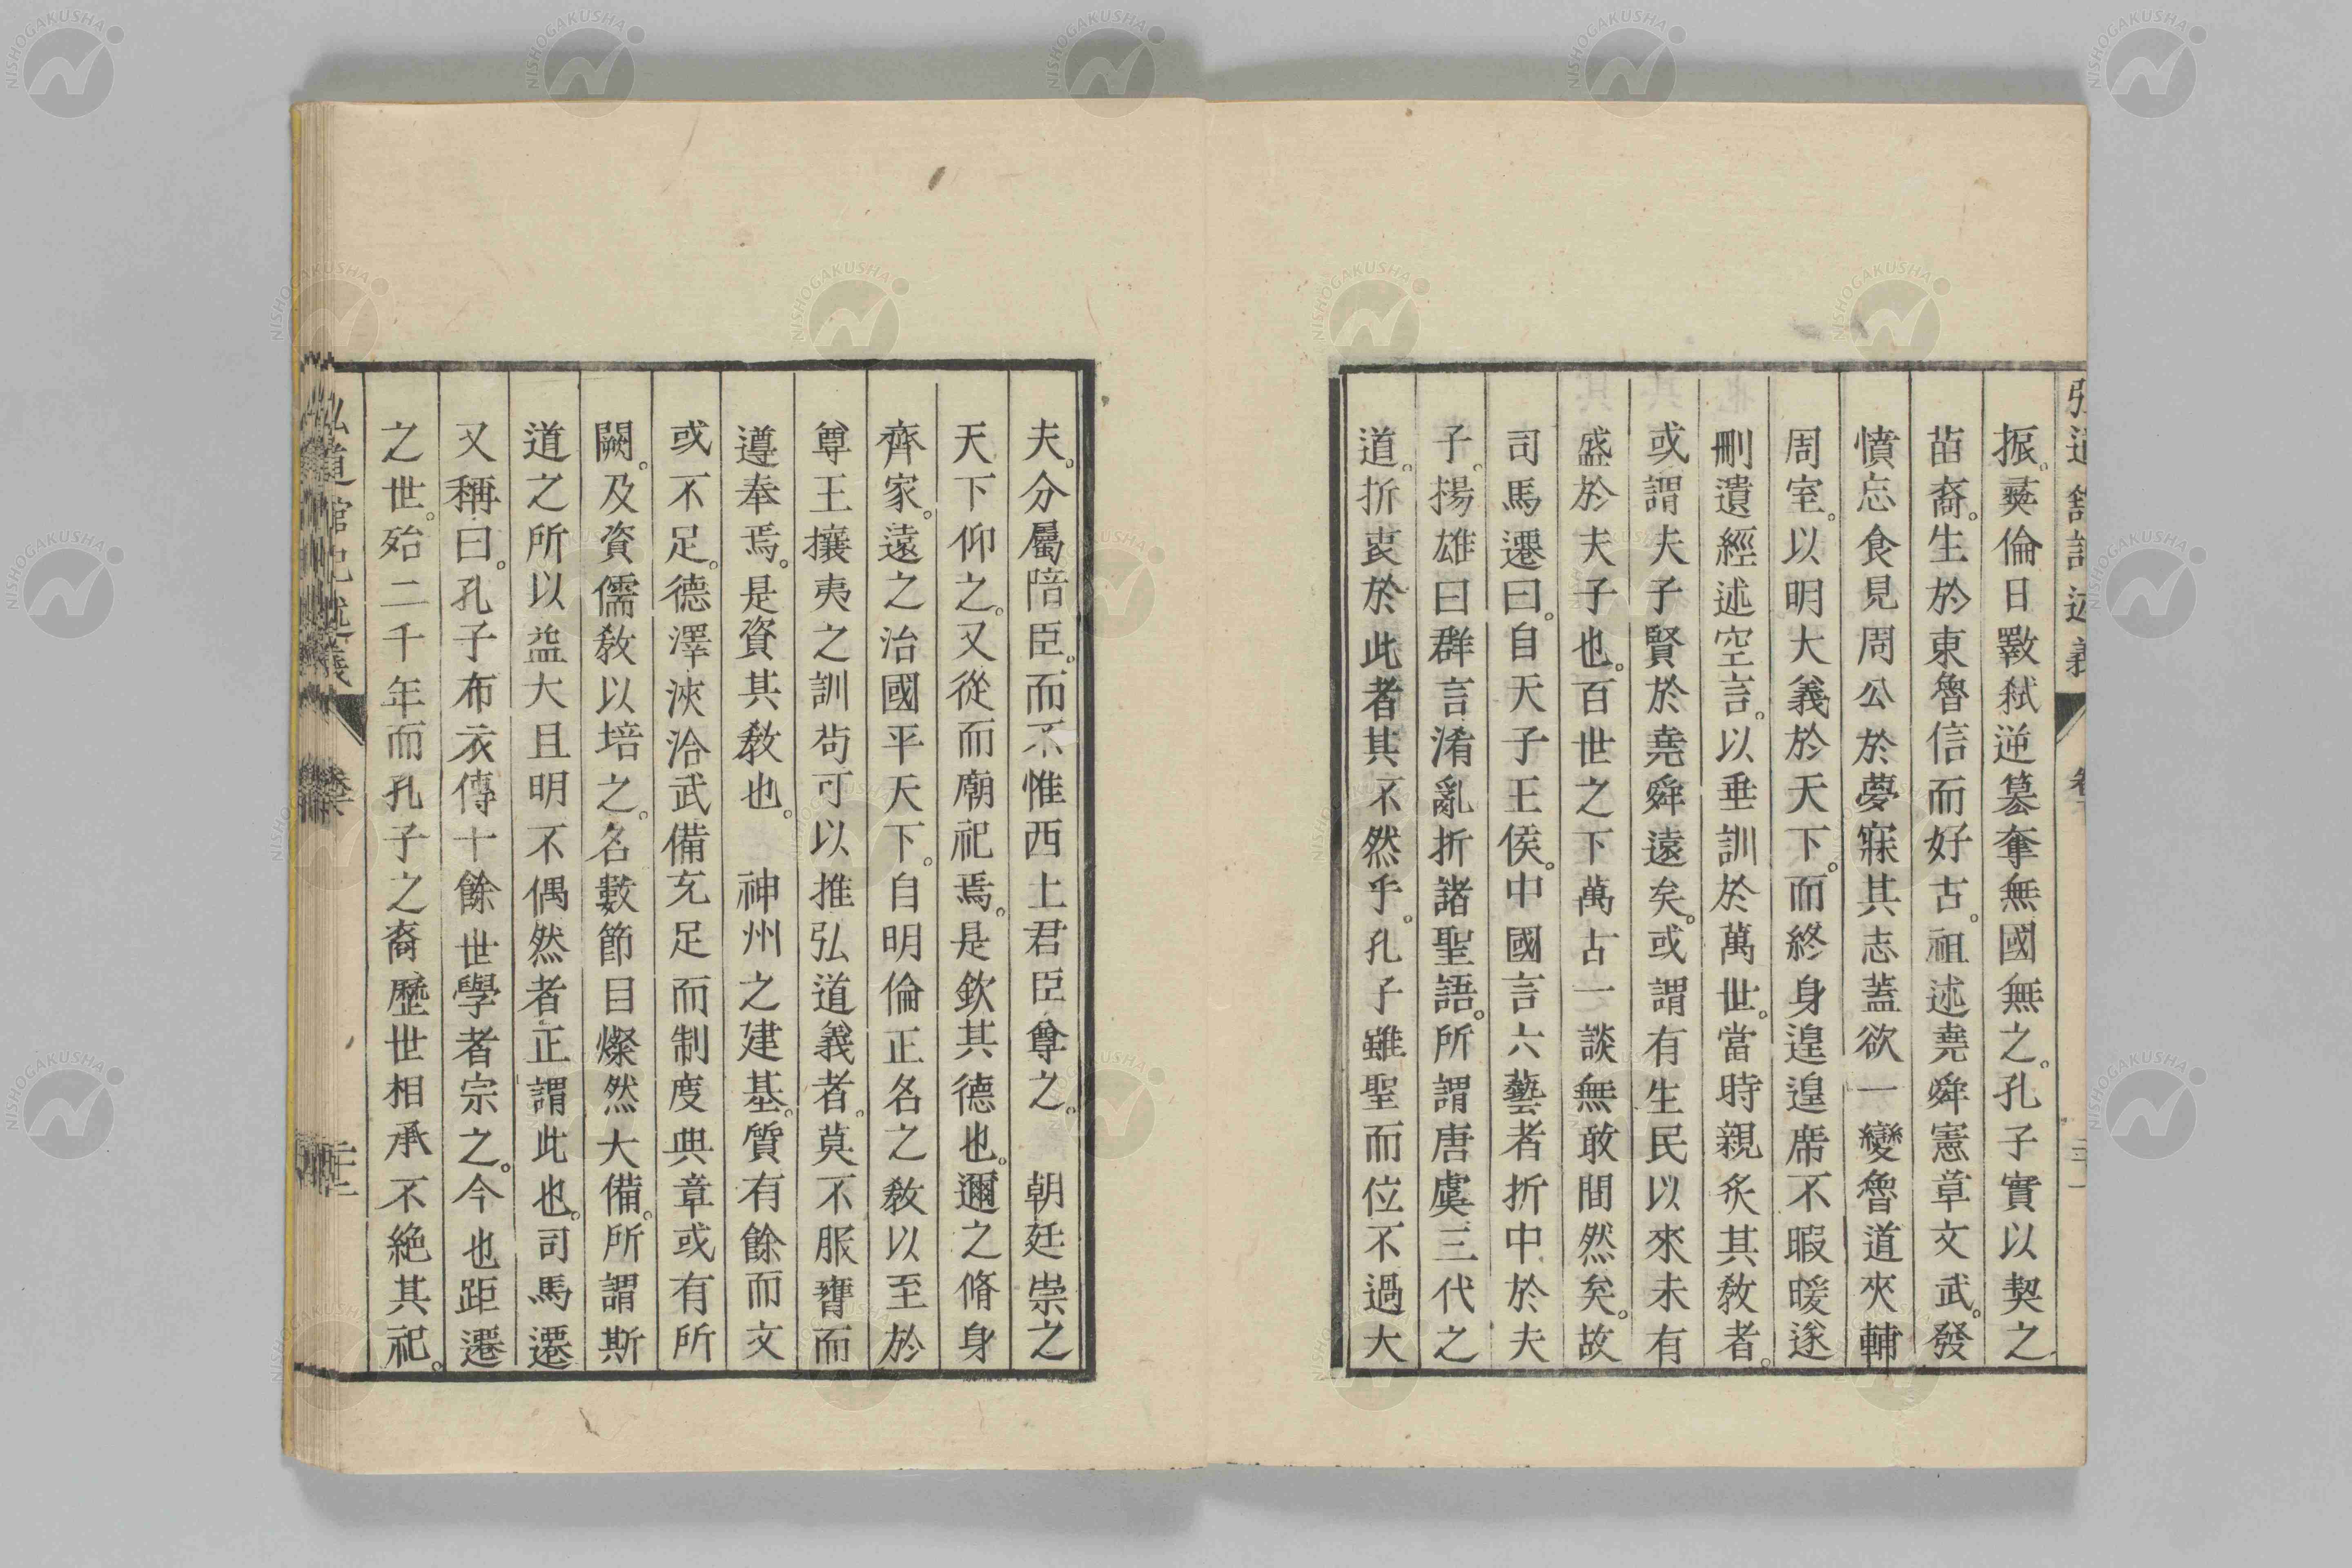 弘道館記述義
振。彝倫日斁弑逆簒奪無國無之。孔子實以契之
苗裔。生於東魯信而好古。祖述堯舜憲章文武。發
憤忘食見周公於夢寐其志蓋欲一變魯道夾輔
周室。以明大義於天下。而終身遑遑席不暇暖遂
刪遺經述空言。以垂訓於萬世。當時親炙其敎者。
或謂夫子賢於堯舜遠矣。或謂有生民以來未有
盛於夫子也。百世之下萬古一談無敢間然矣。故
司馬遷曰。自天子王侯。中國言六藝者折中於夫
子。揚雄曰群言淆亂折諸聖語。所謂唐虞三代之
道。折衷於此者其不然乎。孔子雖聖而位不過大
夫。分屬陪臣。而不惟西土君臣尊之。 朝廷崇之
天下仰之。又從而廟祀焉。是欽其德也。邇之脩身
齊家。遠之治國平天下。自明倫正名之敎以至於
尊王攘夷之訓茍可以推弘道義者。莫不服膺而
遵奉焉。是資其敎也。 神州之建基。質有餘而文
或不足。德澤浹洽武備充足而制度典章或有所
闕。及資儒敎以培之。名數節目燦然大備。所謂斯
道之所以益大且明不偶然者正謂此也。司馬遷
又稱曰。孔子布衣傳十餘世學者宗之。今也距遷
之世。殆二千年而孔子之裔歷世相承不絶其祀。
弘道館記述義
NISHOGAKUSHA